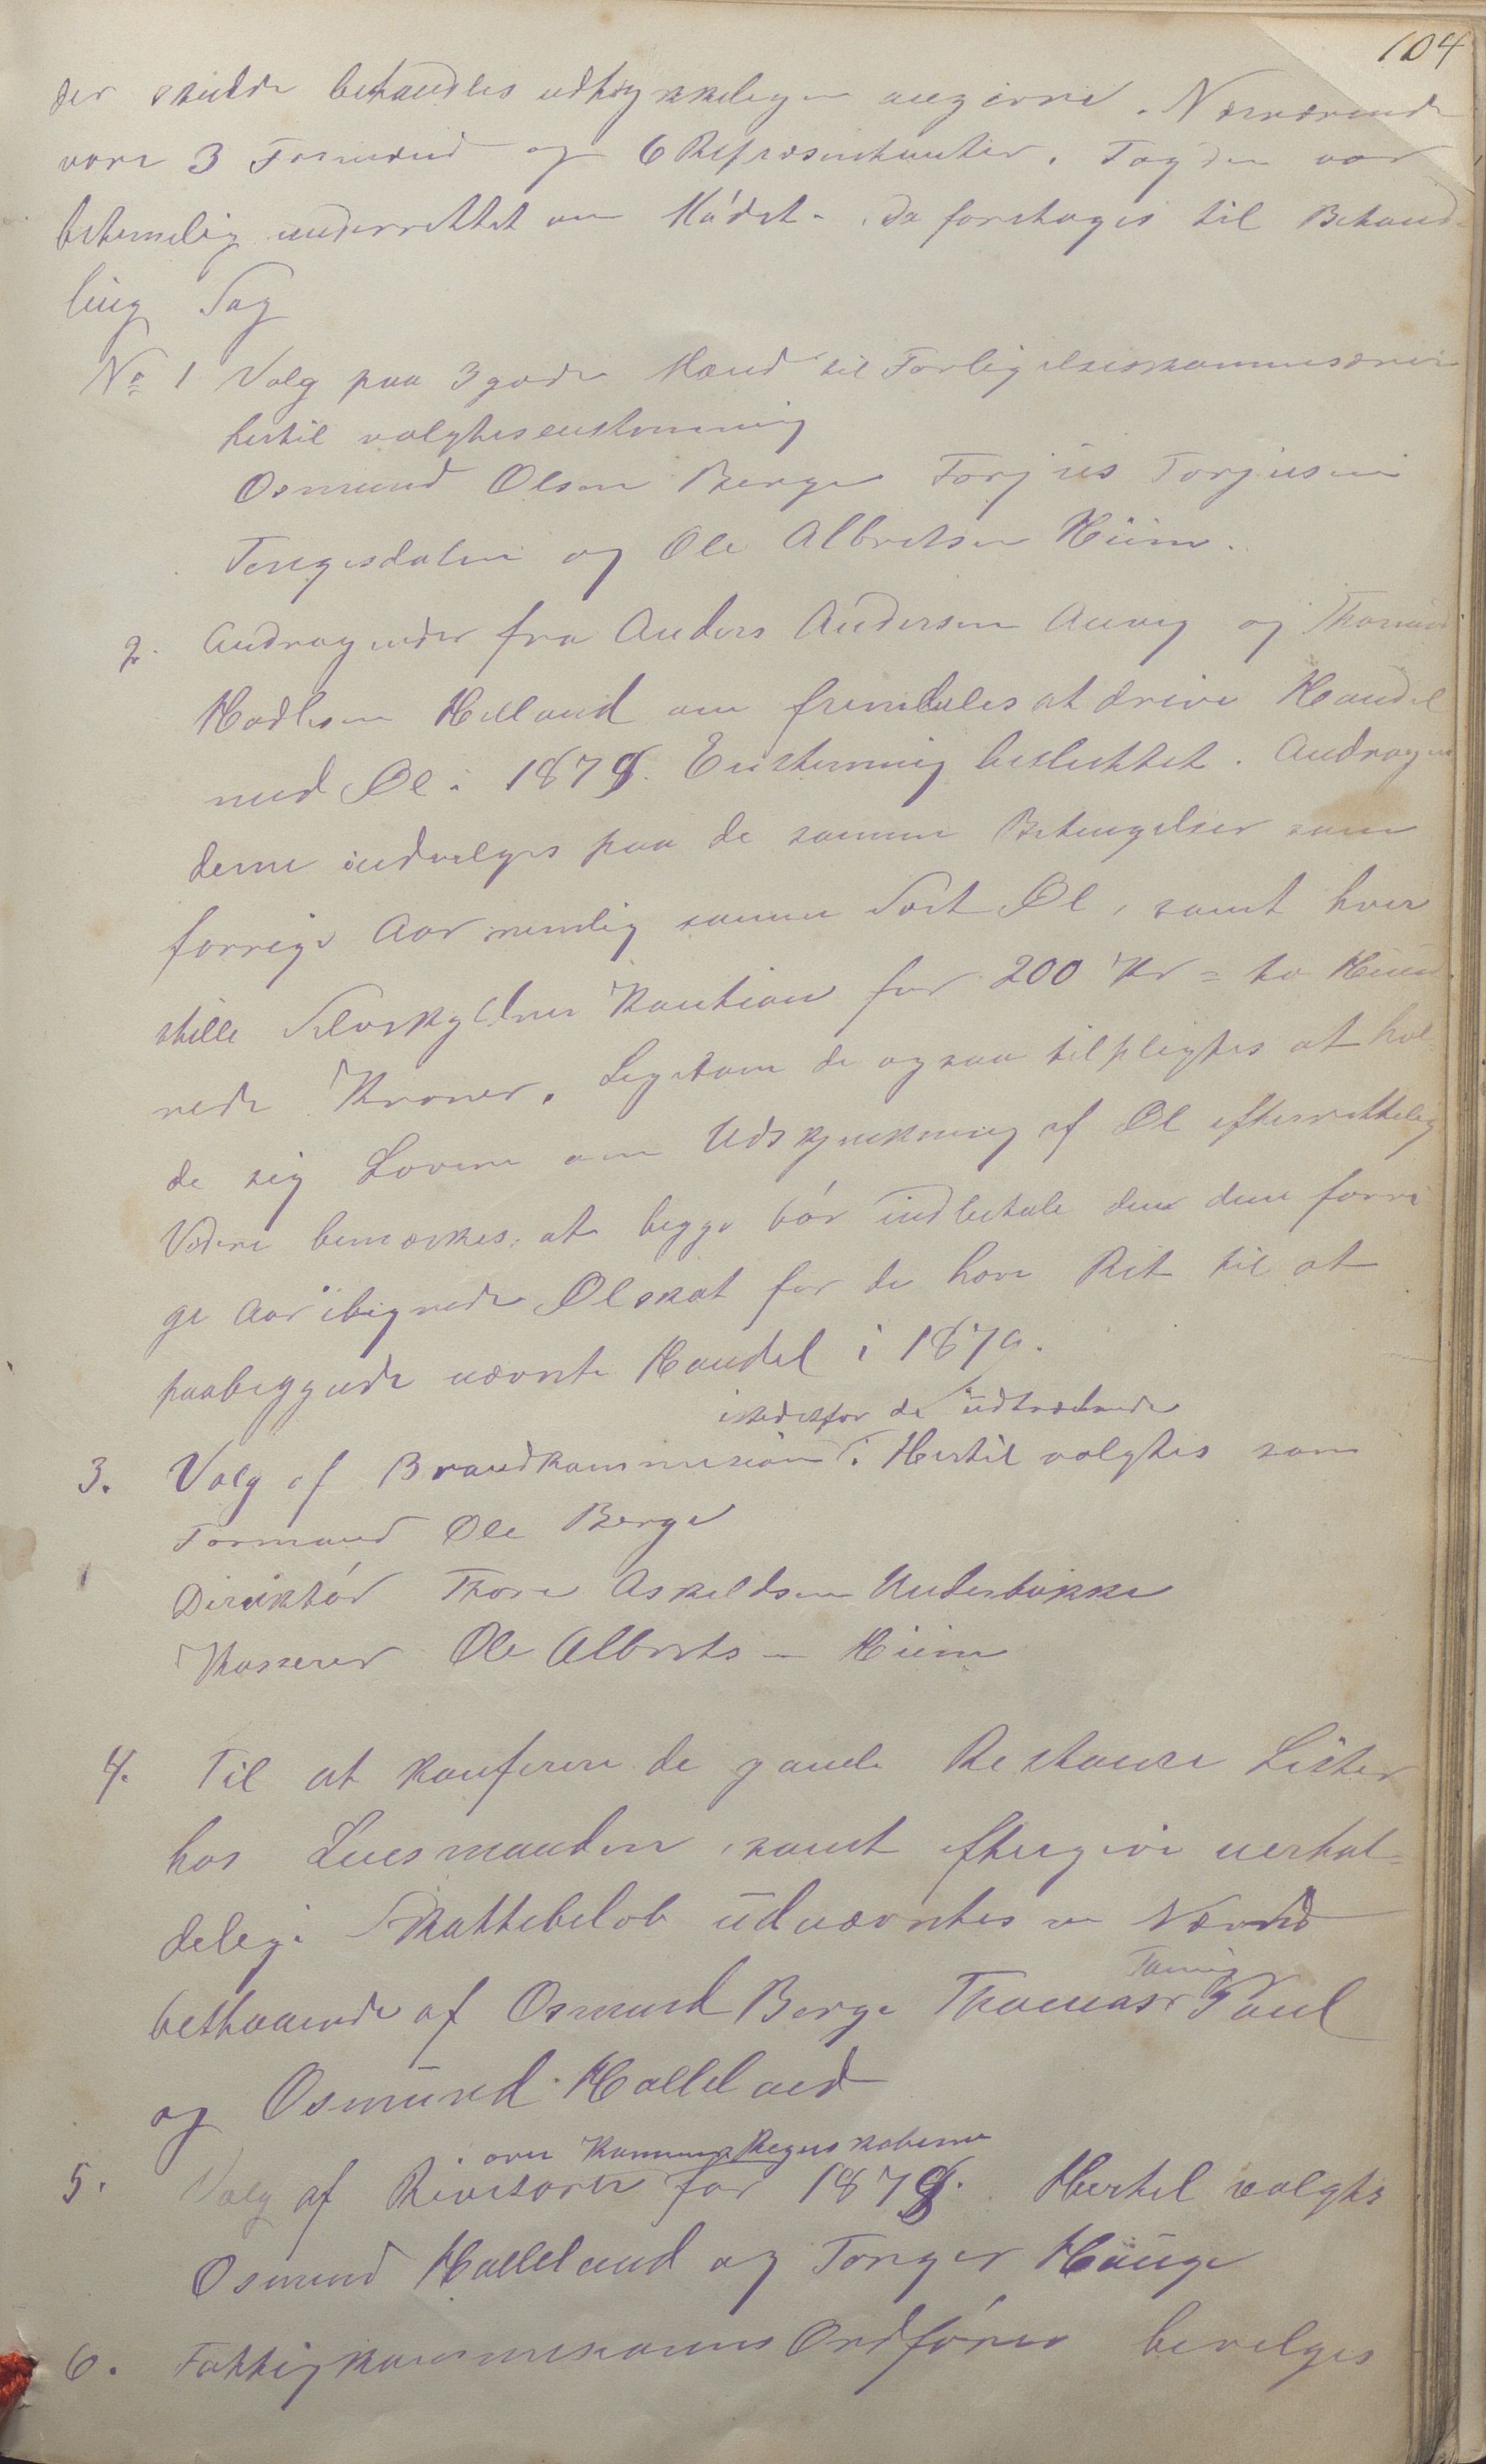 104
der skulde behandles udtrykkeligen angivne. Nærværende
vare 3 Formænd og 6 Repræsentanter. Fogden var
betimelig underrettet om Mödet. Da foretoges til Behand-
ling Sag
No 1 Valg paa 3 gode Mænd til Forligelseskommisærer
hertil valgtes enstemmig
Osmund Olsen Berge Torjus Torjusen
Tengesdalen og Ole Albretsen Hiim.
2. Andragender fra Anders Andersen Anvig og
Hadlesen Helland om fremdeles at drive Handel
med Øl i 1879. Enstemmig besluttet. Andragen
derne indvilges paa de samme Betingelser som
forrige Aar nemlig samme Sort Øl, samt hver
stille Selvskyldner Kaution for 200 Kr = to Hund
rede Kroner. Ligesom de ogsaa tilpligtes at hol-
de sig Loven om Udskjænkning af Øl efterrettelig
Videre bemærkes, at begge bör indbetale den dem forri
ge Aar ilignede Ølskat för de have Ret til at
paabegynde nævnte Handel i 1879.
istedetfor de udtrædende
3. Valg af Brandkommision. Hertil valgtes som
Formand Ole Berge
Direktör Thore Askeldsen Underbakke
Kasserer Ole Albrets-n Hiim
4. Til at konferere de gamle Restance Lister
hos Lensmanden, samt eftergive uerhol-
delige Skattebelöb udnævntes en Nævnd
bestaaende af Osmund Berge Thomas Paul
og Osmund Halleland
over Kommune Regnskaberne
5. Valg af Revisorer for 1878. Hertil valgtes
Osmund Halleland og Torger Hauge
6. Fattigkommisionens Ordförer bevilges